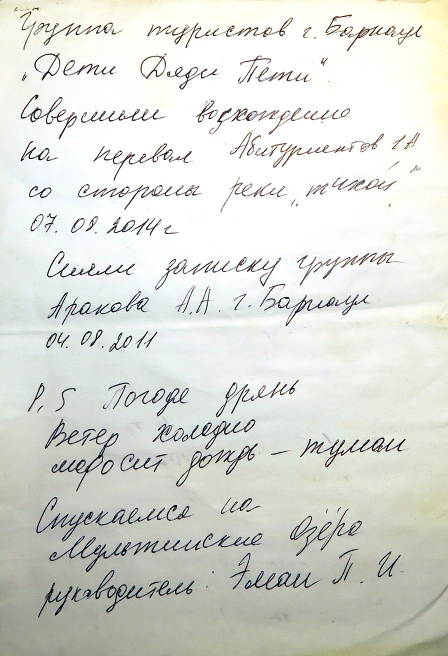 Группа туристов г. Барнаул
„Дети Дяди Пети".
Совершили восхождение
на перевал Абитуриентов 1А
со стороны реки „тихой"
07. 08. 2014 г
Сняли записку группы
Аракова А.А. г. Барнаул
04. 08. 2011
P. S Погода дрянь
Ветер холодно
моросит дождь – туман
Спускаемся на
Мультинские Озёра
руководитель: Эман П. И.